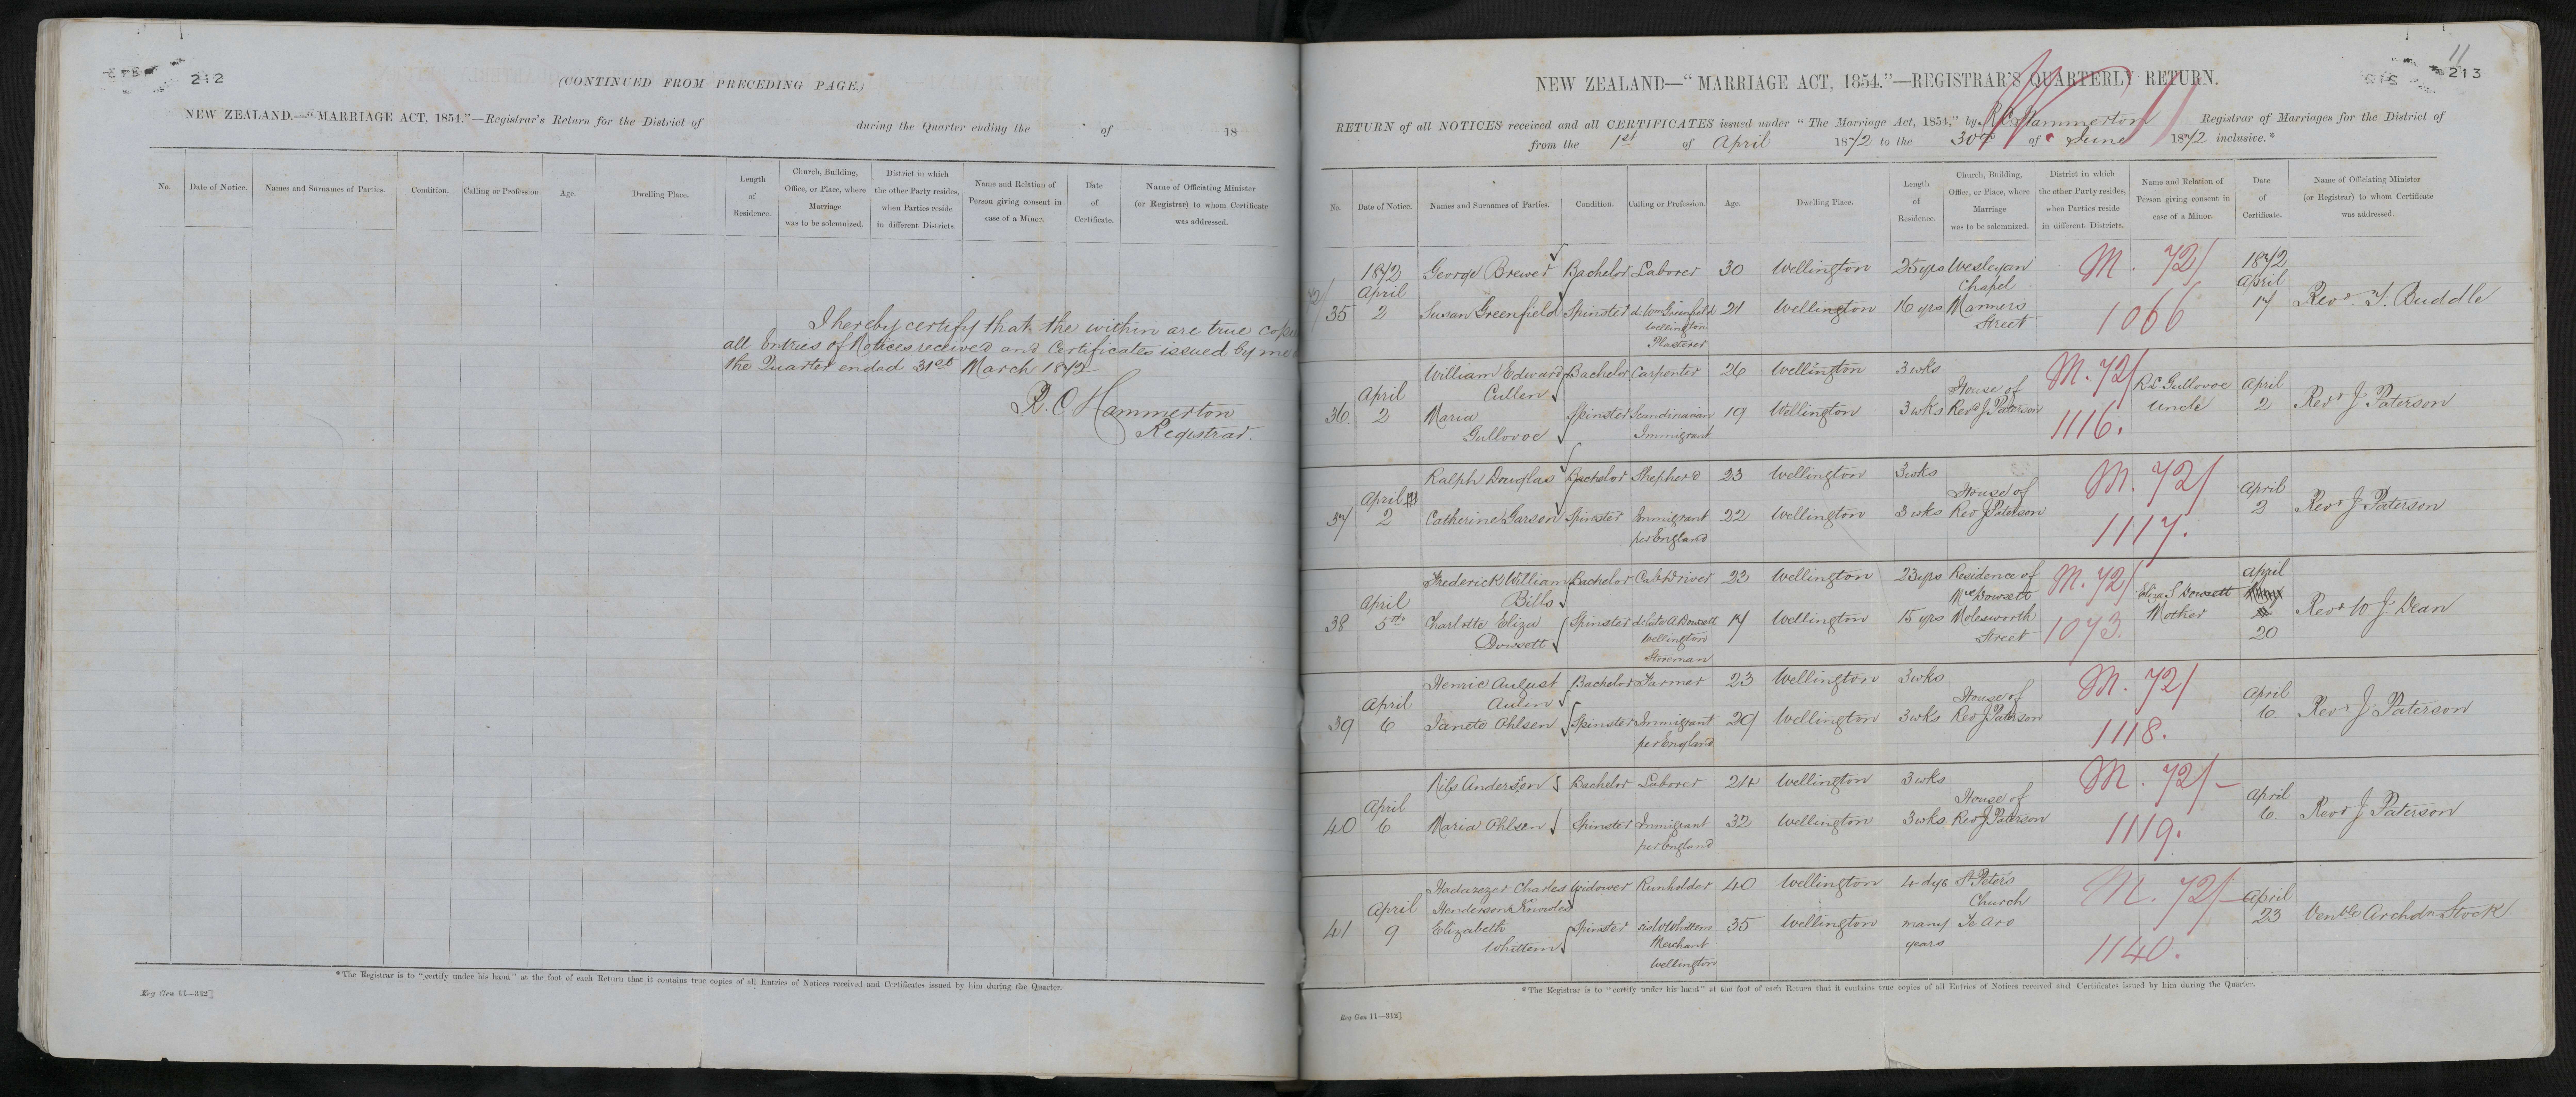 212
(CONTINUED FROM PRECEDING PAGE.)
NEW ZEALAND.—"MARRIAGE ACT, 1854."—Registrar's Return for the District of during the Quarter ending the of 18
No. Date of Notice. Names and Surnames of Parties. Condition. Calling or Profession. Age. Dwelling Place. Length of Residence. Church, Building, Office, or Place, where Marriage was to be solemnized. District in which the other Party resides, when Parties reside in different Districts. Name and Relation of Person giving consent in case of a Minor. Date of Certificate. Name of Officiating Minister (or Registrar) to whom Certificate was addressed.
I hereby certify that the within are true copies
all Entries of Notices received and Certificates issued by me
the Quarter ended 31st March 1872
R. C. Hammerton
Registrar.
*The Registrar is to "certify under his hand" at the foot of each Return that it contains true copies of all Entries of Notices received and Certificates issued by him during the Quarter.
Reg Gen 11—312]
11
213
NEW ZEALAND—"MARRIAGE ACT, 1854."—REGISTRAR'S QUARTERLY RETURN.
RETURN of all NOTICES received and all CERTIFICATES issued under "The Marriage Act, 1854," by R C Hammerton Registrar of Marriages for the District of
from the 1st of April 1872 to the 30th of June 1872 inclusive.*
No. Date of Notice. Names and Surnames of Parties. Condition. Calling or Profession. Age. Dwelling Place. Length of Residence. Church, Building, Office, or Place, where Marriage was to be solemnized. District in which the other Party resides, when Parties reside in different Districts. Name and Relation of Person giving consent in case of a Minor. Date of Certificate. Name of Officiating Minister (or Registrar) to whom Certificate was addressed.
1872 George Brewer Bachelor Laborer 30 Wellington 25 yrs Wesleyan M. 72/ 1872
April Chapel April
35 2 Susan Greenfield Spinster d. Wm Greenfield 21 Wellington 16 yrs Manners 1066 17 Revd. T. Buddle
Wellington Street
Plasterer
William Edward Bachelor Carpenter 26 Wellington 3 wks M. 72/
April Cullen House of R L Gullovoe April
36. 2 Maria Spinster Scandinavian 19 Wellington 3 wks Revd J Paterson 1116. Uncle 2 Revd J Paterson
Gullovoe Immigrant
Ralph Douglas Bachelor Shepherd 23 Wellington 3 wks M. 72/
April House of April
37 2 Catherine Garson Spinster Immigrant 22 Wellington 3 wks Rev J Paterson 1117. 2 Revd J Paterson
per England
Frederick William Bachelor Cab driver 23 Wellington 23 yrs Residence of M. 72/ April
April Bills Mrs Dowsett Eliza S Dowsett
38 5th Charlotte Eliza Spinster d. late A Dowsett 17 Wellington 15 yrs Molesworth 1073. Mother Revd W J Dean
Dowsett Wellington Street 20
Storeman
Henric August Bachelor Farmer 23 Wellington 3 wks M. 72/
April Aulin House of April
39 6 Janete Ohlsen Spinster Immigrant 29 Wellington 3 wks Rev J Paterson 1118. 6. Revd J Paterson
per England
Nils Anderson Bachelor Laborer 24 Wellington 3 wks M. 72/-
April House of April
40 6 Maria Ohlsen Spinster Immigrant 32 Wellington 3 wks Rev J Paterson 1119. 6 Revd J Paterson
per England
Hadarezer Charles Widower Runholder 40 Wellington 4 dys St Peters M. 72/-
April Henderson Knowles Church April
41 9 Elizabeth Spinster 35 Wellington many Te Aro 23 Venble Archdn Stock
Whittem Merchant years 1140.
Wellington
*The Registrar is to "certify under his hand" at the foot of each Return that it contains true copies of all Entries of Notices received and Certificates issued by him during the Quarter.
Reg Gen 11—312]